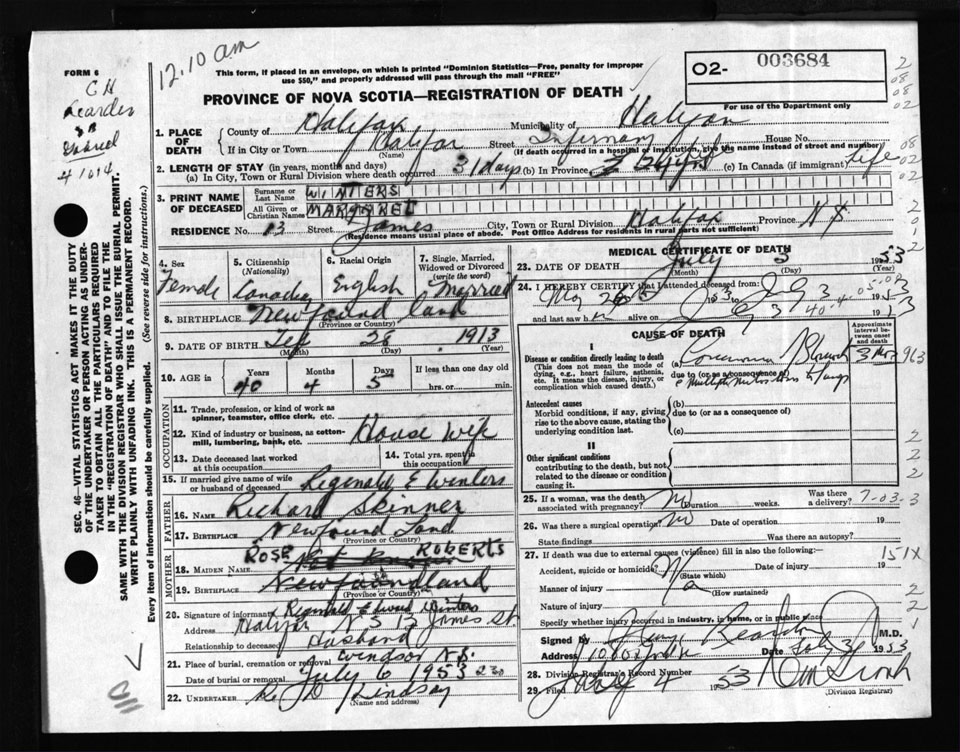 FORM 6
12.10 am
This form, if placed in an envelope, on which is printed "Dominion Statistics—Free, penalty for improper
use $50," and properly addressed will pass through the mail "FREE"
PROVINCE OF NOVA SCOTIA—REGISTRATION OF DEATH
O2- 003684
For use of the Department only
1. PLACE OF DEATH
County of Halifax Municipality of Halifax
If in City or Town Halifax Street Infirmary House No.
(Name) (If death occurred in a hospital or institution, give the name instead of street and number)
2. LENGTH OF STAY (in years, months and days)
(a) In City, Town or Rural Division where death occurred 31 days (b) In Province (c) In Canada (if immigrant) Life
3. PRINT NAME OF DECEASED
Surname or Last Name WINTERS
All Given or Christian Names MARGARET
RESIDENCE No. 13 Street James City, Town or Rural Division Halifax Province N S
(Residence means usual place of abode. Post Office Address for residents in rural parts not sufficient)
4. Sex Female
5. Citizenship (Nationality) Canadian
6. Racial Origin English
7. Single, Married, Widowed or Divorced (write the word) Married
8. BIRTHPLACE Newfoundland
(Province or Country)
9. DATE OF BIRTH Feb 28 1913
(Month) (Day) (Year)
10. AGE in Years Months Days If less than one day old
40 4 5 hrs. or min.
OCCUPATION
11. Trade, profession, or kind of work as spinner, teamster, office clerk, etc.
12. Kind of industry or business, as cotton-mill, lumbering, bank, etc. House wife
13. Date deceased last worked at this occupation
14. Total yrs. spent in this occupation
15. If married give name of wife or husband of deceased Reginald E Winters
FATHER
16. NAME Richard Skinner
17. BIRTHPLACE Newfound Land
(Province or Country)
MOTHER
18. MAIDEN NAME ROSE ROBERTS
19. BIRTHPLACE Newfoundland
(Province or Country)
20. Signature of informant Reginald Edward Winters
Address Halifax N S 13 James St.
Relationship to deceased Husband
21. Place of burial, cremation or removal Windsor N.S.
Date of burial or removal July 6 1953
22. UNDERTAKER Lindsay
(Name and address)
MEDICAL CERTIFICATE OF DEATH
23. DATE OF DEATH July 3 1953
(Month) (Day) (Year)
24. I HEREBY CERTIFY that I attended deceased from
and last saw h alive on
CAUSE OF DEATH
Approximate interval between onset and death
I
Disease or condition directly leading to death
(This does not mean the mode of dying, e.g., heart failure, asthenia, etc. It means the disease, injury, or complication which caused death.)
(a) Carcinoma Stomach
due to (or as a consequence of)
Antecedent causes
Morbid conditions, if any, giving rise to the above cause, stating the underlying condition last.
(b)
due to (or as a consequence of)
(c)
II
Other significant conditions
contributing to the death, but not related to the disease or condition causing it.
25. If a woman, was the death associated with pregnancy? No Duration weeks. Was there a delivery?
26. Was there a surgical operation? No Date of operation 19
State findings Was there an autopsy?
27. If death was due to external causes (violence) fill in also the following:
Accident, suicide or homicide? Date of injury 19
(State which)
Manner of injury
(How sustained)
Nature of injury
Specify whether injury occurred in industry, in home, or in public place
Signed by M.D.
Address Date July 3 1953
28. Division Registrar's Record Number
29. Filed July 4 1953
(Division Registrar)
SEC. 46—VITAL STATISTICS ACT MAKES IT THE DUTY
OF THE UNDERTAKER OR PERSON ACTING AS UNDERTAKER TO OBTAIN ALL THE PARTICULARS REQUIRED
IN THE "REGISTRATION OF DEATH" AND TO FILE THE
SAME WITH THE DIVISION REGISTRAR WHO SHALL ISSUE THE BURIAL PERMIT.
WRITE PLAINLY WITH UNFADING INK. THIS IS A PERMANENT RECORD.
Every item of information should be carefully supplied. (See reverse side for instructions.)